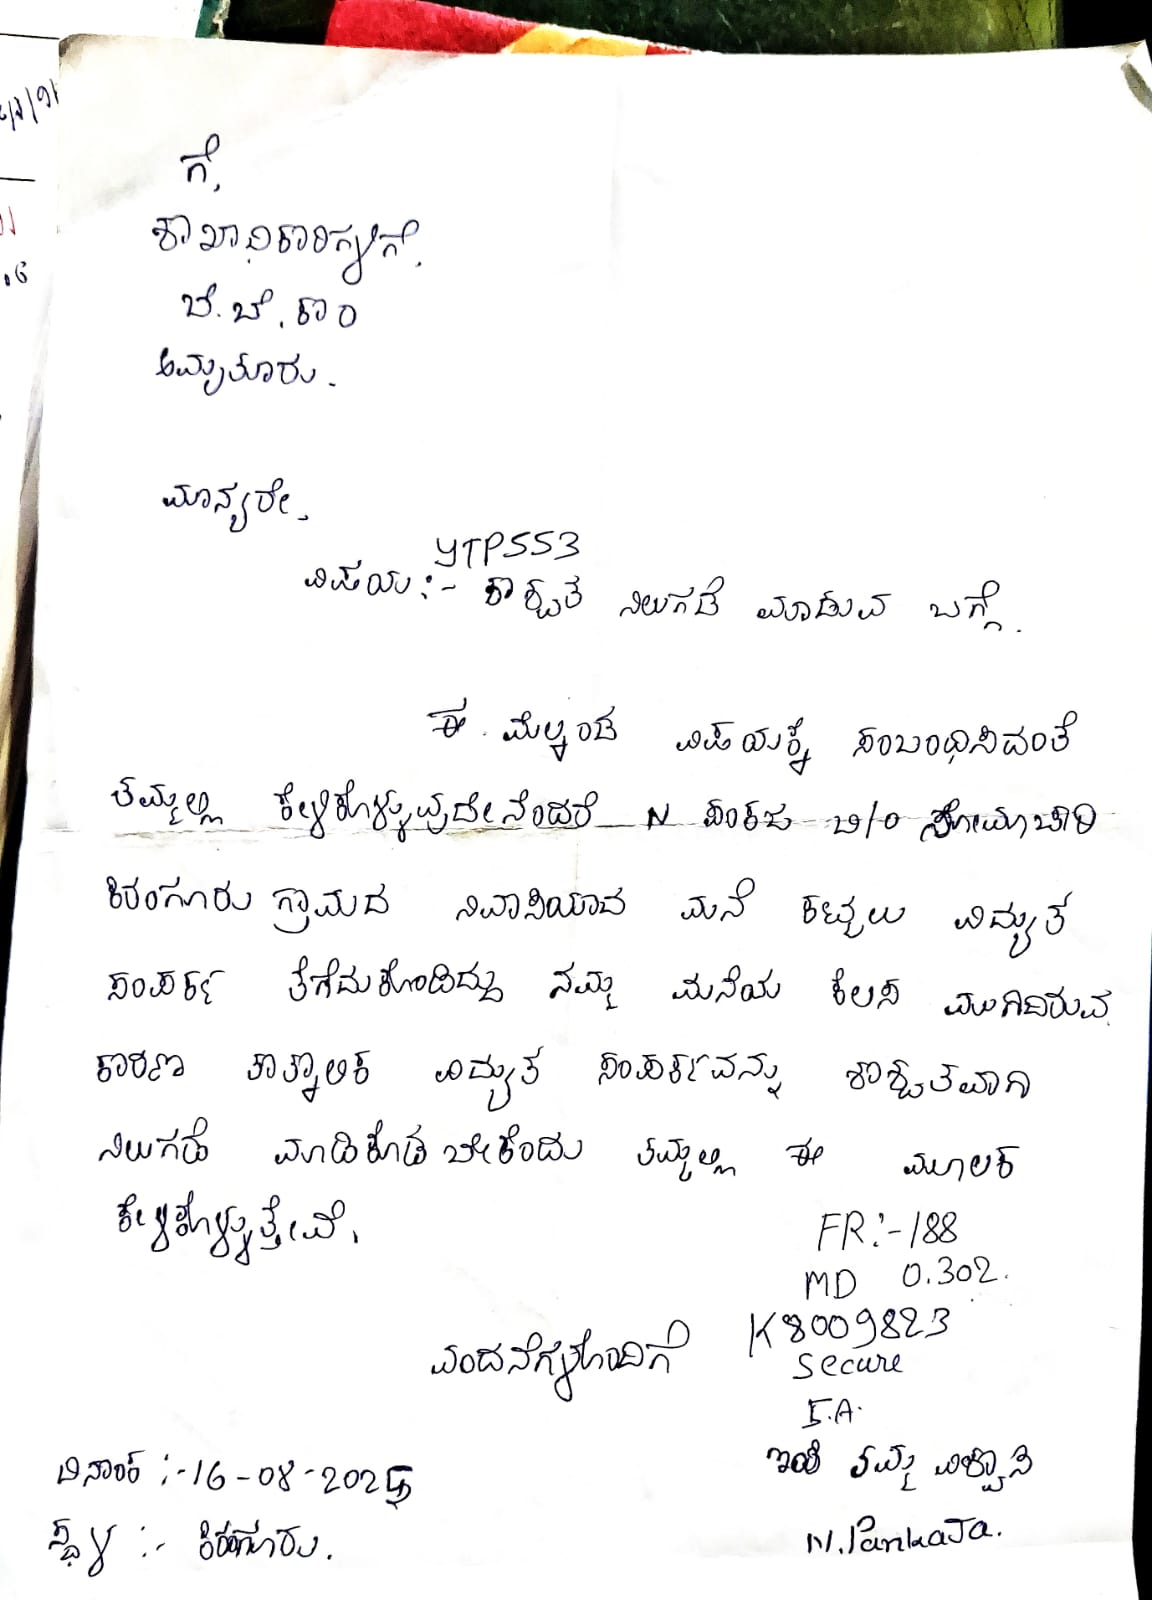 ಗೆ,
ಶಾಖಾಧಿಕಾರಿಗಳಿಗೆ,
ಬೆ.ಬೆ.ಕಾಂ
ಅಮೃತೂರು.
ಮಾನ್ಯರೇ,
YTP553
ವಿಷಯ :- ಶಾಶ್ವತ ನಿಲುಗಡೆ ಮಾಡುವ ಬಗ್ಗೆ.
ಈ ಮೆಲ್ಕಂಡ ವಿಷಯಕ್ಕೆ ಸಂಬಂಧಿಸಿದಂತೆ
ತಮ್ಮಲ್ಲಿ ಕೇಳಿಕೊಳ್ಳುವುದೇನೆಂದರೆ N ಪಂಕಜ ಬಿ/o ಸೋಮಾಚಾರಿ
ಕಿರಂಗೂರು ಗ್ರಾಮದ ನಿವಾಸಿಯಾದ ಮನೆ ಕಟ್ಟಲು ವಿದ್ಯುತ
ಸಂಪರ್ಕ ತೆಗೆದುಕೊಂಡಿದ್ದು ನಮ್ಮ ಮನೆಯ ಕೆಲಸ ಮುಗಿದಿರುವ
ಕಾರಣ ತಾತ್ಕಾಲಿಕ ವಿದ್ಯುತ ಸಂಪರ್ಕವನ್ನು ಶಾಶ್ವತವಾಗಿ
ನಿಲುಗಡೆ ಮಾಡಿಕೊಡಬೇಕೆಂದು ತಮ್ಮಲ್ಲಿ ಈ ಮೂಲಕ
ಕೇಳಿಕೊಳ್ಳುತ್ತೇವೆ.
FR:-188
MD 0.302.
K8009823
Secure
I.A.
ವಂದನೆಗಳೊಂದಿಗೆ
ಇಂತಿ ತಮ್ಮ ವಿಶ್ವಾಸಿ
ದಿನಾಂಕ :-16-08-2025
ಸ್ಥಳ :- ಕಿರಂಗೂರು.
N.PankaJa.